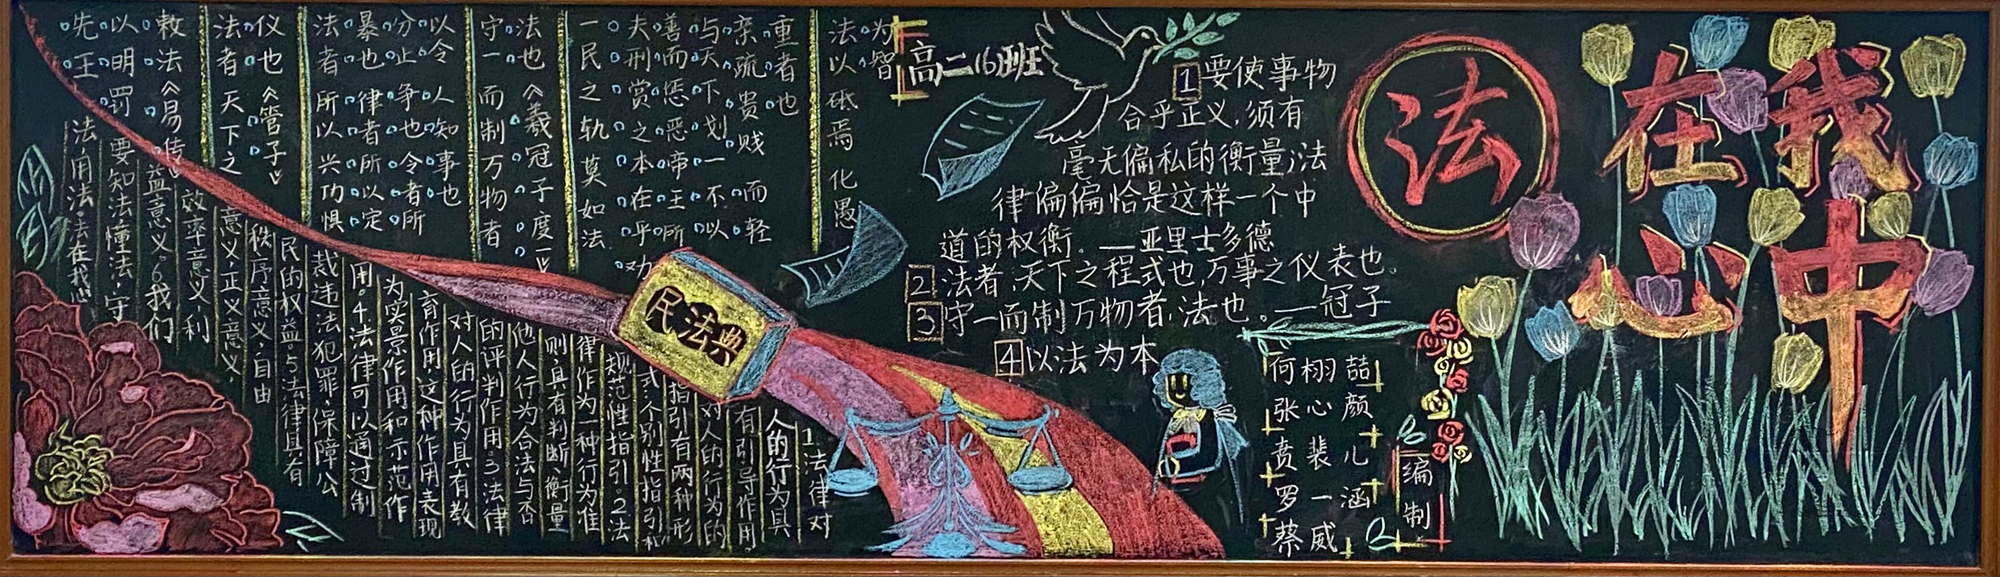 法
在我
心中
先王
以明罚
敕法《易传》
法者天下之
仪也《管子》
法者所以兴功惧
暴也 律者所以定
分止争也 令者所
以令人知事也
守一而制万物者
法也《羲冠子度》
一民之轨莫如法
夫刑赏之本在乎劝
善而惩恶 帝王所
与天下划一 不以
亲疏贵贱 而轻
重者也
法以砥焉 化愚
为智
高二(6)班
1 要使事物
合乎正义,须有
毫无偏私的衡量;法
律偏偏恰是这样一个中
道的权衡。——亚里士多德
2 法者,天下之程式也,万事之仪表也。
3 守一而制万物者,法也。——冠子
4 以法为本
民法典
1.法律对
人的行为具
有引导作用,
对人的行为的
指引有两种形
式:个别性指引和
规范性指引.2法
律作为一种行为准
则具有判断,衡量
他人行为合法与否
的评判作用.3法律
对人的行为具有教
育作用这种作用表现
为实景作用和示范作
用.4法律可以通过制
裁违法犯罪,保障公
民的权益.5法律具有
秩序意义,自由
意义,正义意义,
效率意义,利
益意义.6我们
要知法懂法,守
法用法.法在我心
何栩喆
张心颜
贲裴儿
罗一涵
蔡威
编制